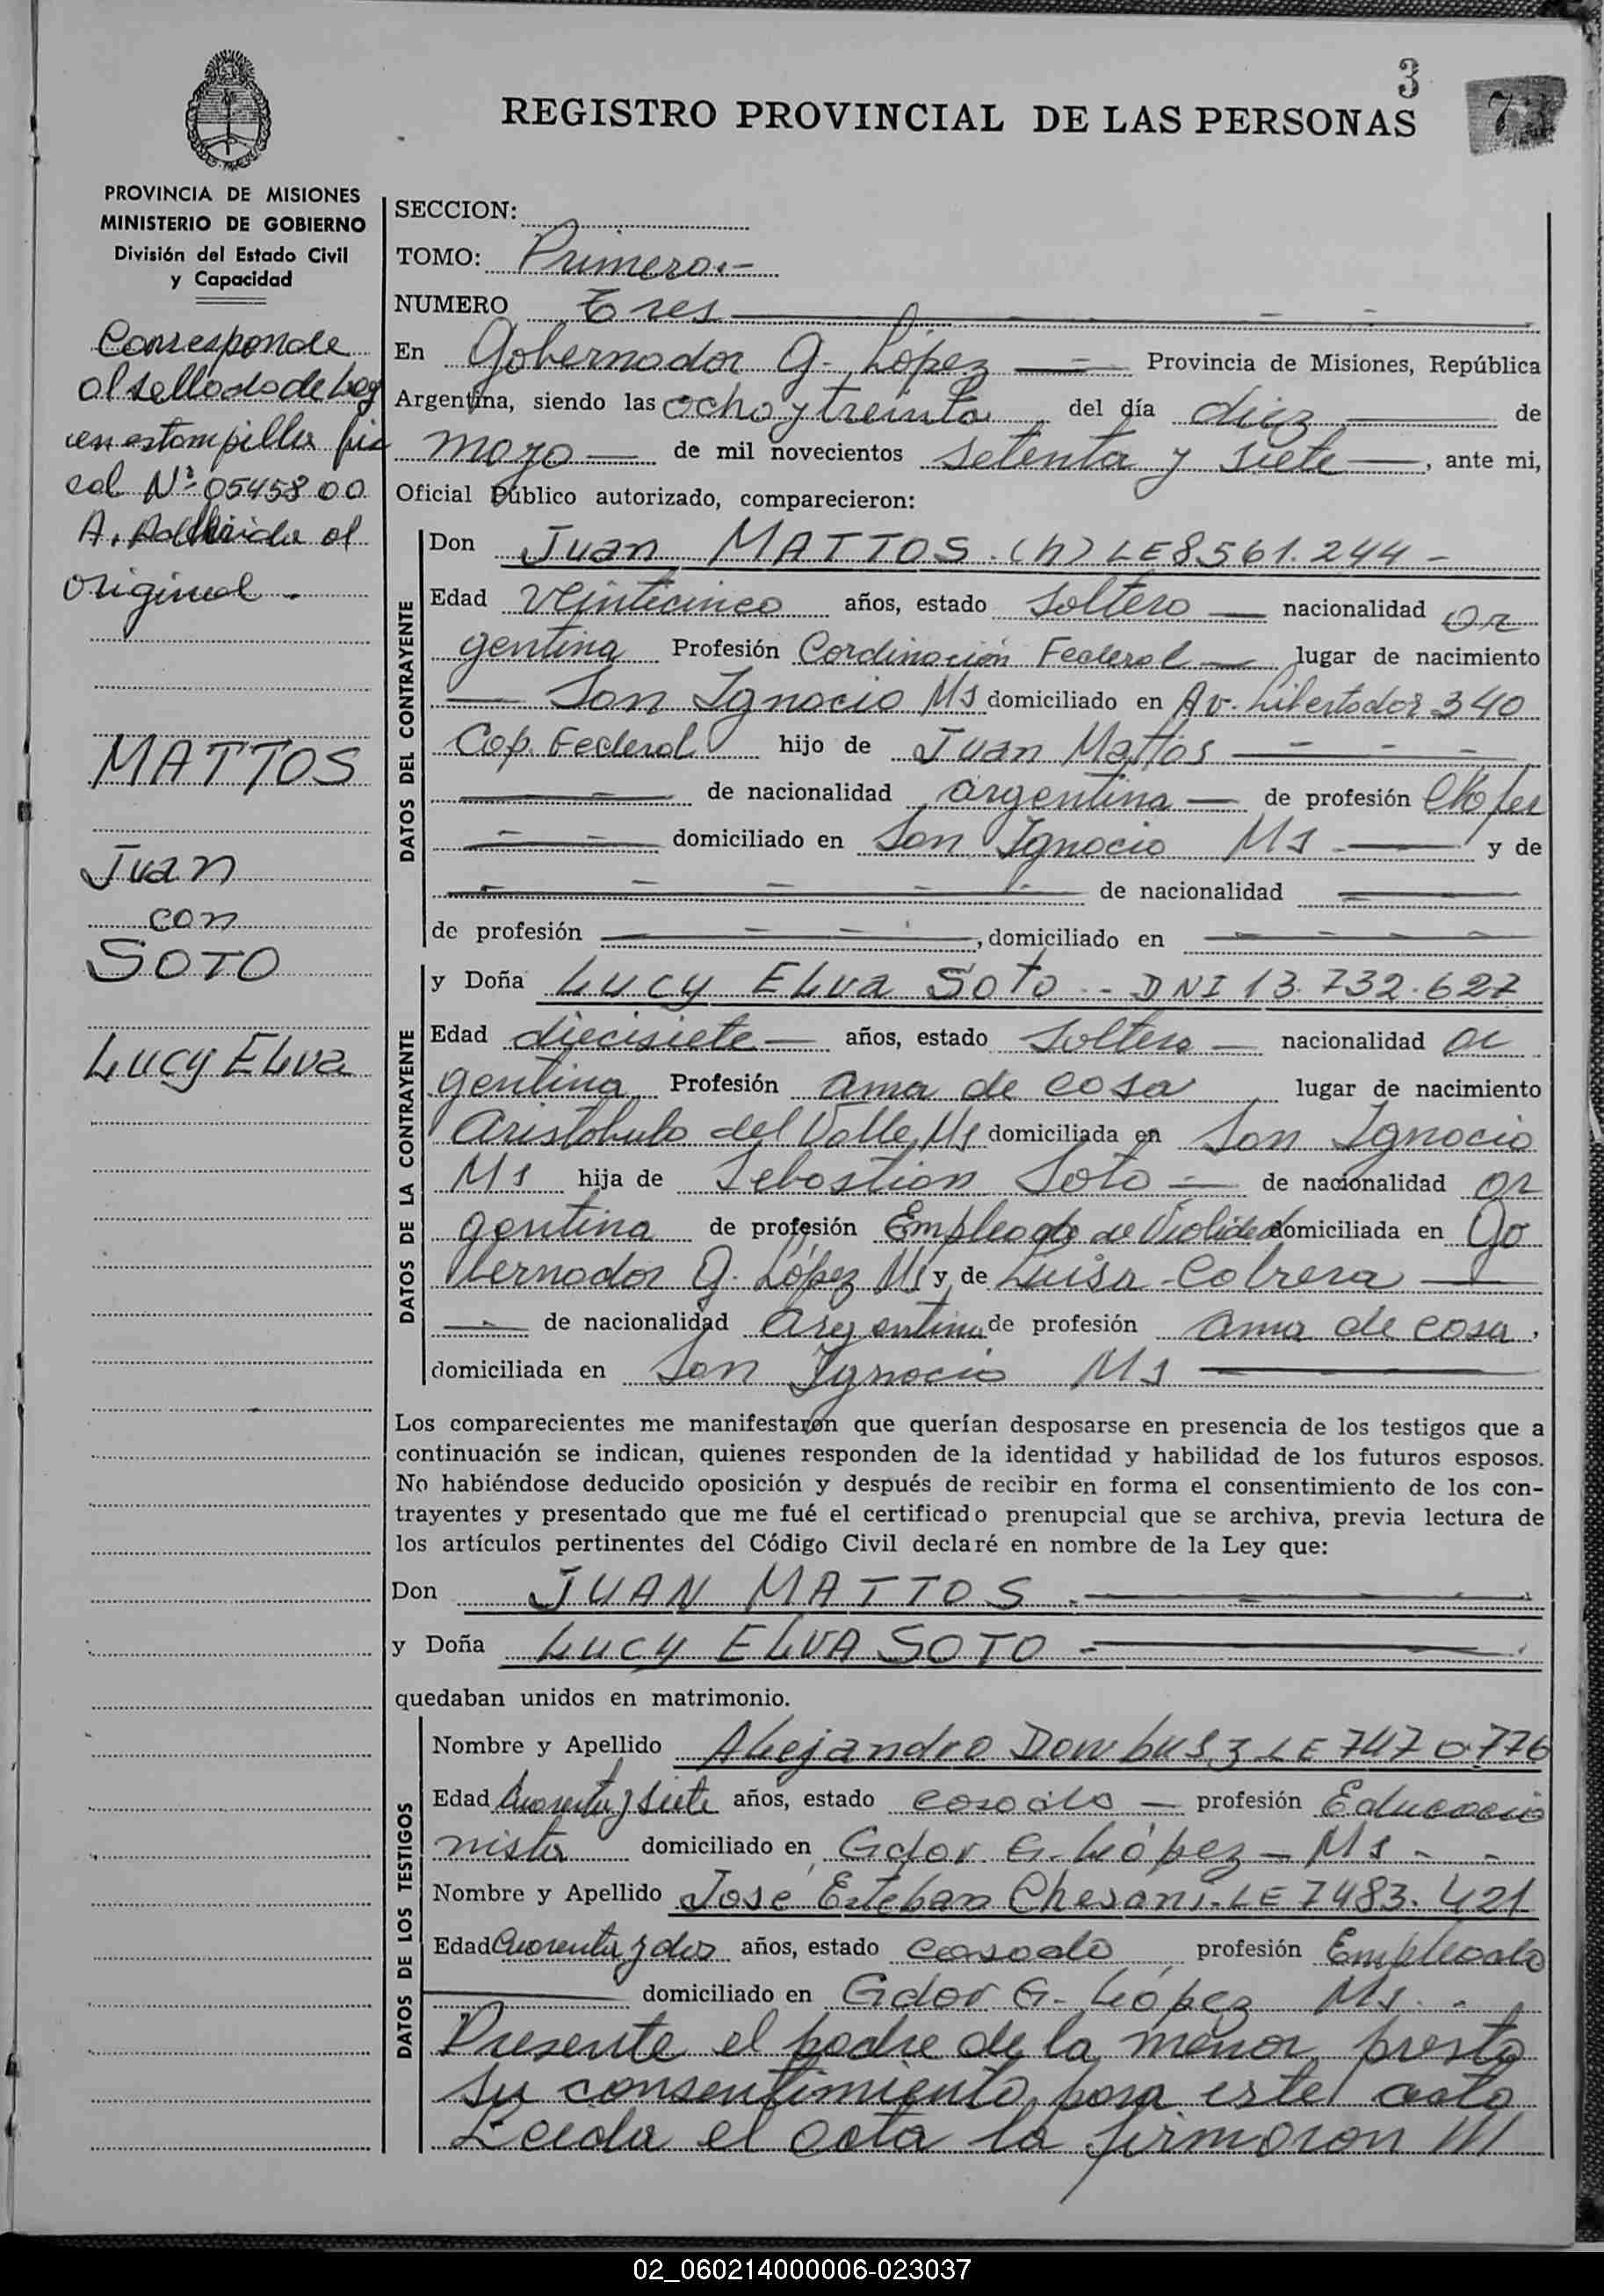 3
REGISTRO PROVINCIAL DE LAS PERSONAS
7
PROVINCIA DE MISIONES
MINISTERIO DE GOBIERNO
División del Estado Civil
y Capacidad
Corresponde
al sellado de Ley
en estampilla fis
cal Nº 0545800
A. Adherida al
original.
MATTOS
Juan
con
SOTO
Lucy Elva
SECCION:
TOMO: Primero.-
NUMERO Tres
En Gobernador G. López Provincia de Misiones, República
Argentina, siendo las ocho y treinta del día diez de
mayo de mil novecientos setenta y siete, ante mi,
Oficial Público autorizado, comparecieron:
DATOS DEL CONTRAYENTE
Don Juan MATTOS (h) LE 8.561.244 -
Edad veinticinco años, estado soltero nacionalidad ar
gentina Profesión Cordinación Federal lugar de nacimiento
San Ignacio Ms domiciliado en Av. Libertador 340
Cap. Federal hijo de Juan Mattos
de nacionalidad argentina de profesión chofer
domiciliado en San Ignacio Ms y de
de nacionalidad
de profesión , domiciliado en
DATOS DE LA CONTRAYENTE
y Doña Lucy Elva Soto - DNI 13.732.627
Edad diecisiete años, estado soltera nacionalidad ar
gentina Profesión ama de casa lugar de nacimiento
Aristobulo del Valle, Ms domiciliada en San Ignacio
Ms hija de Sebastian Soto de nacionalidad ar
gentina de profesión Empleado de Vialidad domiciliada en Go
bernador G. López Ms y de Luisa Cabrera
de nacionalidad Argentina de profesión ama de casa,
domiciliada en San Ignacio Ms
Los comparecientes me manifestaron que querían desposarse en presencia de los testigos que a
continuación se indican, quienes responden de la identidad y habilidad de los futuros esposos.
No habiéndose deducido oposición y después de recibir en forma el consentimiento de los con-
trayentes y presentado que me fué el certificado prenupcial que se archiva, previa lectura de
los artículos pertinentes del Código Civil declaré en nombre de la Ley que:
Don JUAN MATTOS.
y Doña LUCY ELVA SOTO -
quedaban unidos en matrimonio.
DATOS DE LOS TESTIGOS
Nombre y Apellido Alejandro Dombusz LE 7470776
Edad Cuarenta y siete años, estado casado profesión Educacio
nista domiciliado en Gdor. G. López - Ms - -
Nombre y Apellido José Esteban Chesani - LE 7483.421
Edad Cuarenta y dos años, estado casado profesión Empleado
domiciliado en Gdor G. López Ms. -
Presente el padre de la menor presta
su consentimiento para este acto
Leida el acta la firmaron ///
02_060214000006-023037